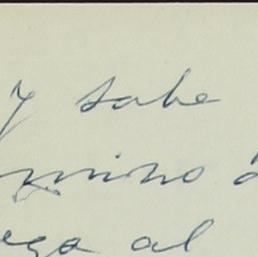 y sabe
mino d
ega al